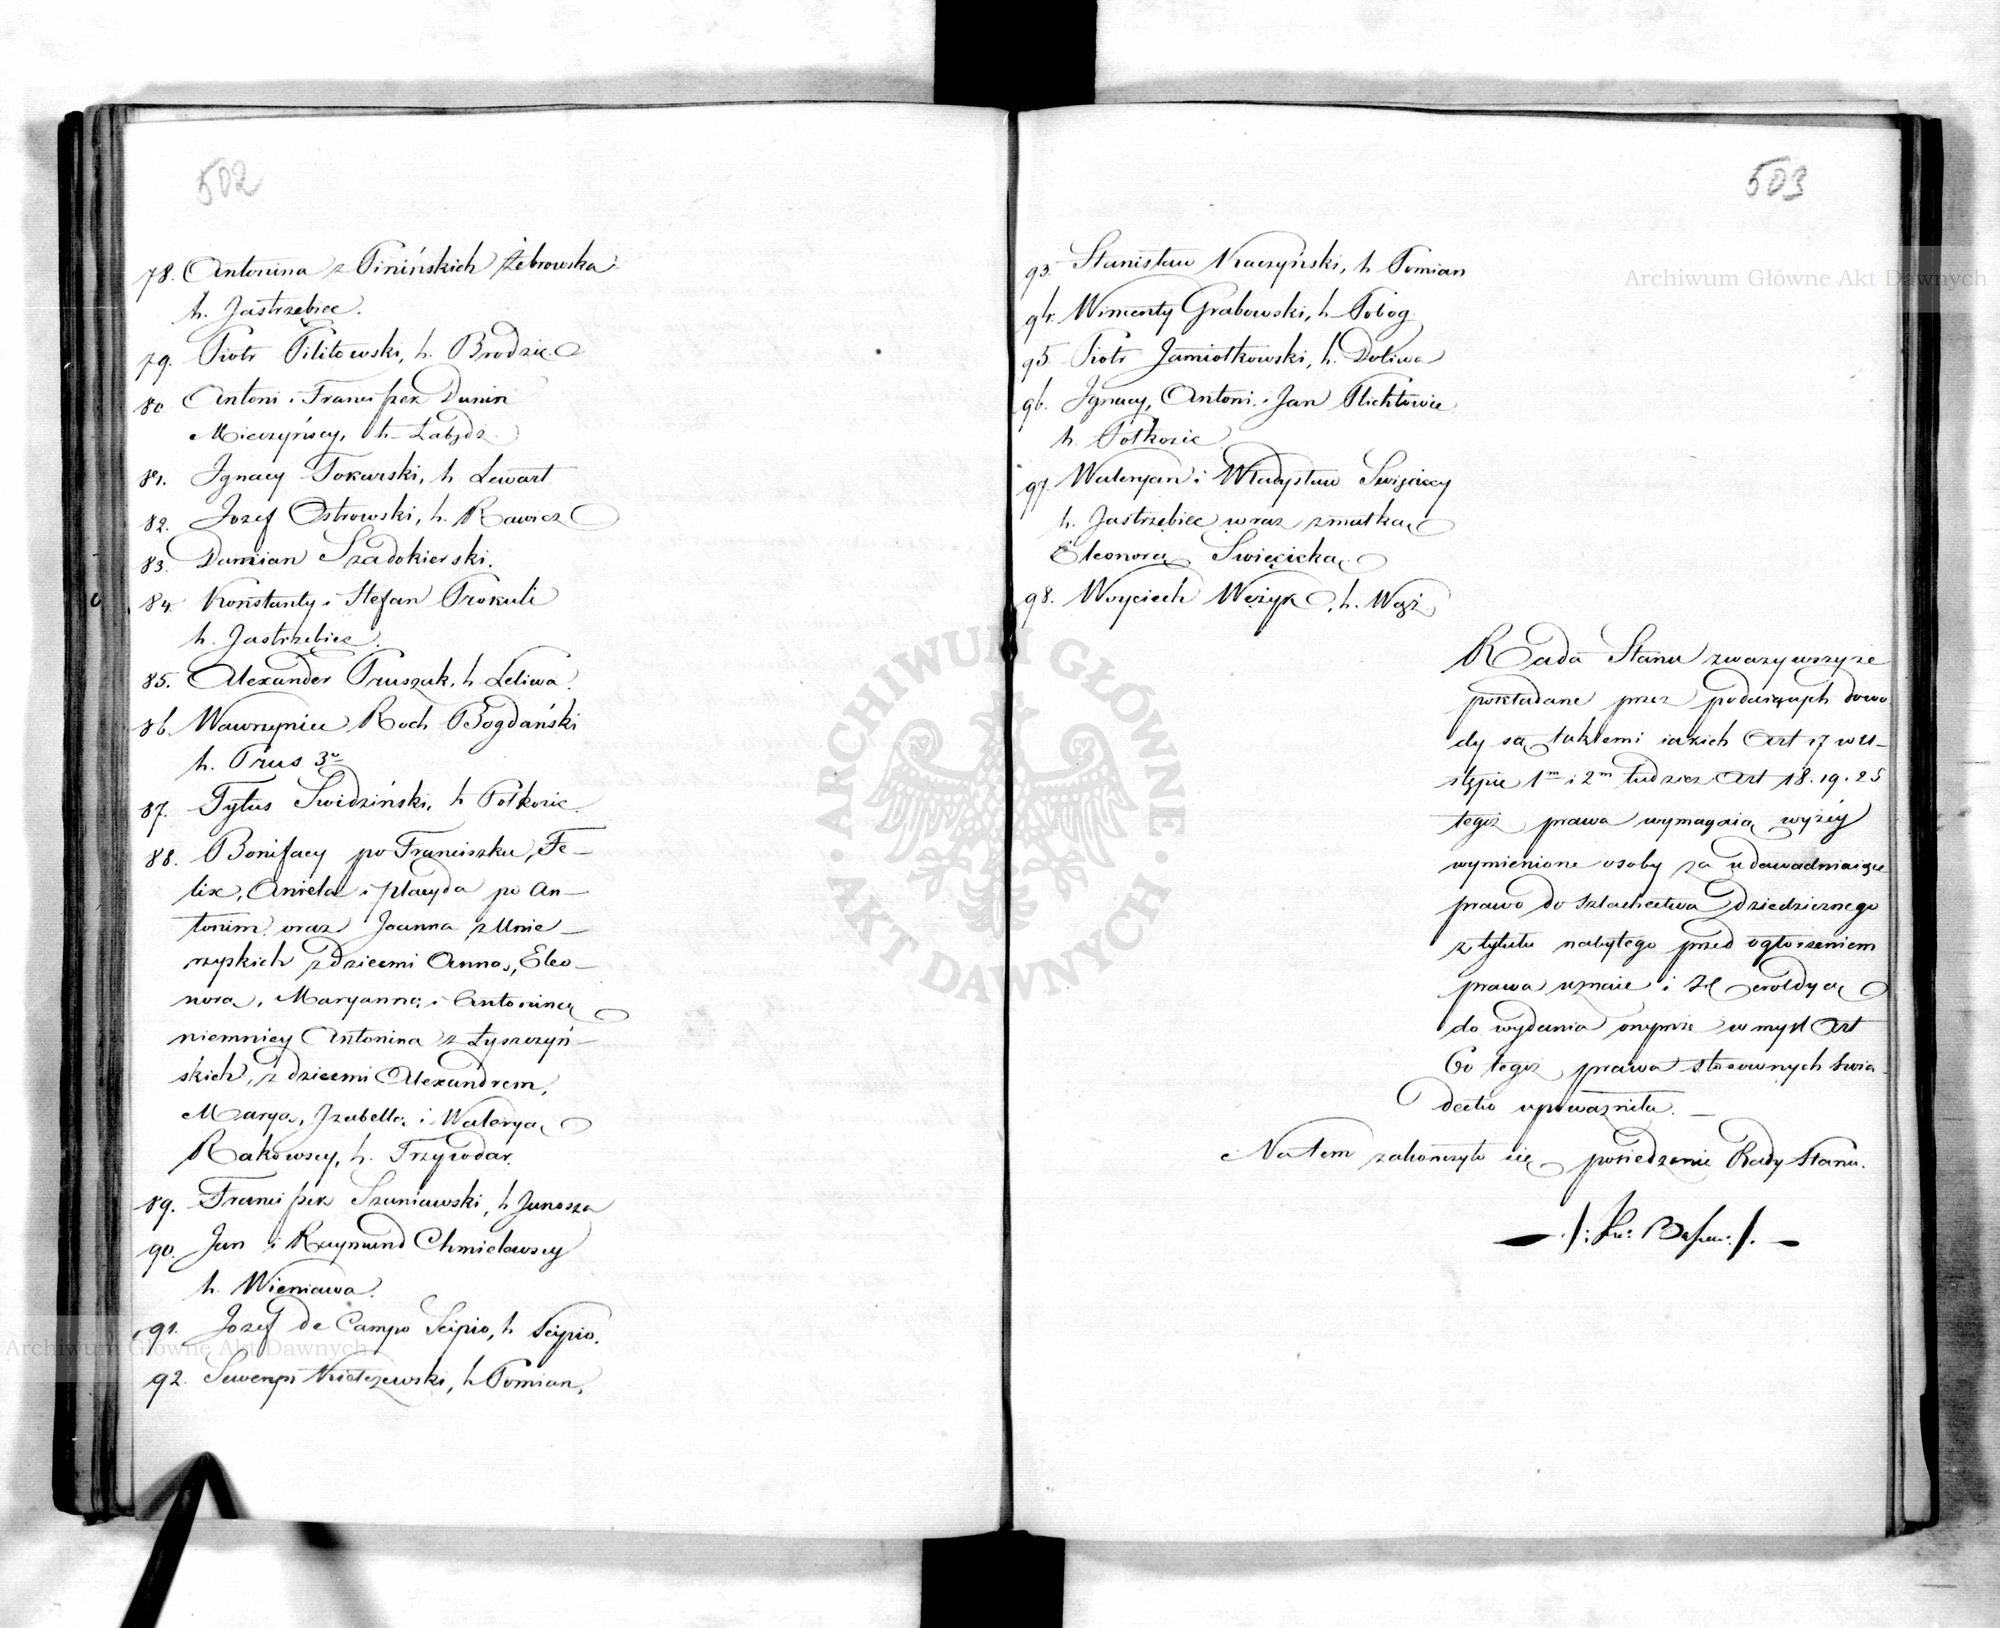 502
78. Antonina z Pinińskich Żebrowska
h. Jastrzębiec.
79. Piotr Pilitowski, h. Brodzic
80. Antoni i Franciszek Dunin
Mieczyńscy, h. Łabędź
81. Ignacy Tokarski, h Lewart
82. Jozef Ostrowski, h. Rawicz
83. Damian Szadokierski.
84. Konstanty i Stefan Prokuli
h. Jastrzębiec.
85. Alexander Pruszak, h. Leliwa.
86. Wawrzyniec Roch Bogdański
h. Prus 3º
87. Tytus Swidziński, h Półkozic
88. Bonifacy po Franciszku, Fe-
lix, Aniela i Placyda po An-
tonim oraz Joanna z Unie-
rzyskich z dziećmi Anną, Eleo-
norą, Maryanną i Antoniną
niemniey Antonina z Łyszczyń-
skich, z dziećmi Alexandrem,
Maryą, Izabellą i Waleryą
Rakowscy, h. Trzywdar.
89. Franciszek Szaniawski, h Junosza
90. Jan i Raymund Chmielewscy
h. Wieniawa.
91. Jozef de Campo Scipio, h Scipio.
92. Seweryn Kiełczewski, h Pomian,
503
93. Stanisław Kaczyński, h Pomian
94. Wincenty Grabowski, h Pobog.
95 Piotr Jamiołkowski, h. Doliwa
96. Ignacy, Antoni i Jan Plichtowie
h. Półkozic
97. Waleryan i Władysław Swięciccy
h. Jastrzębiec wraz z matką
Eleonorą Swięcicką.
98. Woyciech Wężyk, h. Wąż
Rada Stanu zważywszy że
pokładane przez podaiących dowo
dy są takiemi iakich Art 17 w U-
stępie 1m i 2m tudzież Art 18. 19. 25
tegoż prawa wymagaią wyżey
wymienione osoby za udowadniaiące
prawo do szlachectwa dziedzicznego
z tytułu nabytego przed ogłoszeniem
prawa uznaie i Heroldyą
do wydania onymże w myśl Art
60 tegoż prawa stosownych świa
dectw upoważniła. -
Na tem zakończyło się posiedzenie Rady Stanu.
Archiwum Główne Akt Dawnych
Archiwum Główne Akt Dawnych
ARCHIWUM GŁÓWNE · AKT DAWNYCH ·